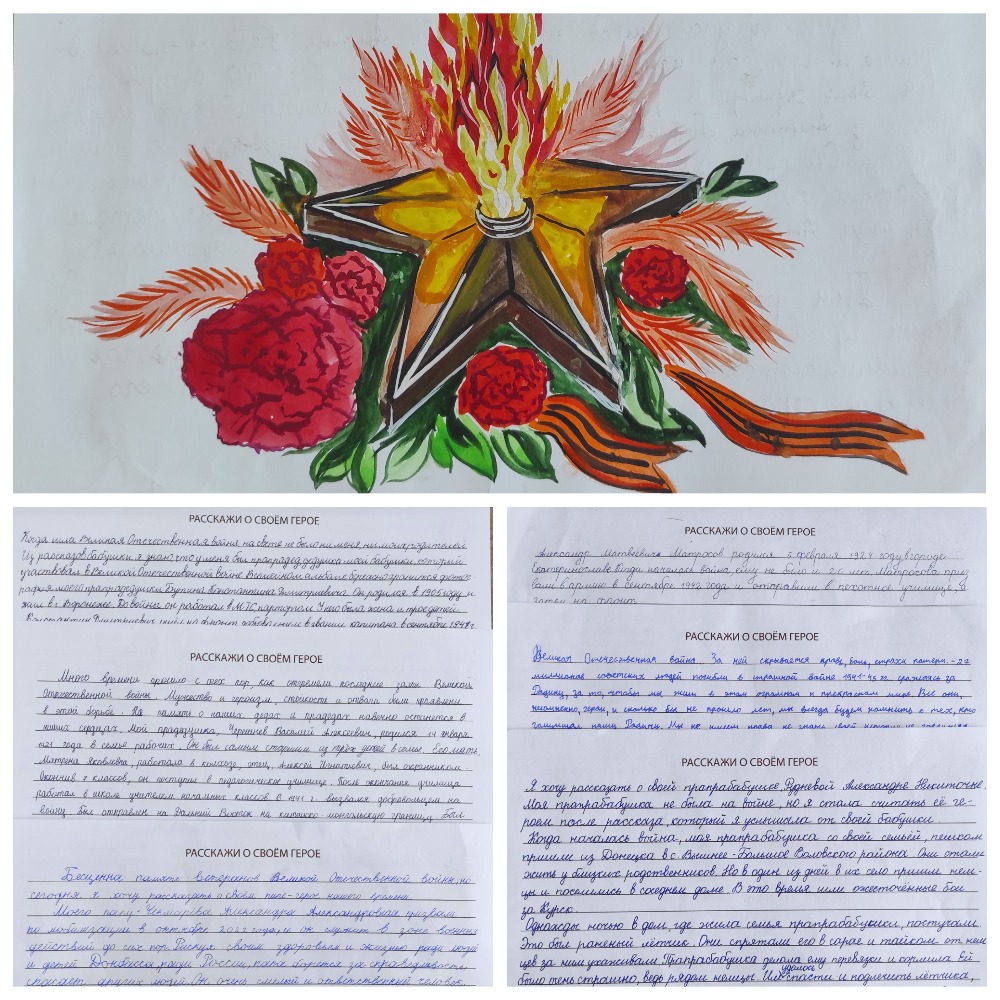 РАССКАЖИ О СВОЁМ ГЕРОЕ
Когда шла Великая Отечественная война на свете не было ни меня, ни моих родителей.
Из рассказов бабушки я знаю что у меня был прапрадед дедушка моей бабушки, который
участвовал в Великой Отечественной войне. В семейном альбоме бережно хранится фотог-
рафия моего прапрадедушки Константина Дмитриевича. Он родился в 1905 году и
жил в г. Воронеже. До войны он работал в МТС парторгом. У него была жена и трое детей
Константин Дмитриевич ушёл на фронт добровольцем в звании капитана в сентябре 1941 г.
РАССКАЖИ О СВОЁМ ГЕРОЕ
Много времени прошло с тех пор, как отгремели последние залпы Великой
Отечественной войны. Мужество и героизм, стойкость и отвага были проявлены
в этой борьбе. Но память о наших дедах и прадедах навечно останется в
наших сердцах. Мой прадедушка, Василий Алексеевич, родился 14 января
1921 года в семье рабочих. Он был самым старшим из трёх детей в семье. Его мать,
Матрена Яковлевна, работала в колхозе, отец, Алексей Игнатьевич, был охранником.
Окончив 7 классов, он поступил в педагогическое училище. После окончания училища
работал в школе учителем начальных классов. В 1941 г. вызвался добровольцем на
войну. Был отправлен на Дальний Восток на китайско-монгольскую границу. Был
РАССКАЖИ О СВОЁМ ГЕРОЕ
Бесценна память ветеранов Великой Отечественной войны, но
сегодня я хочу рассказать о своём папе-герое нашего времени.
Моего папу - Чекмарёва Александра Александровича призвали
по мобилизации в октябре 2022 года, и он служит в зоне военных
действий до сих пор. Рискуя своим здоровьем и жизнью ради людей
и детей Донбасса, ради России, папа борется за справедливость,
спасает других людей. Он очень смелый и ответственный человек.
РАССКАЖИ О СВОЁМ ГЕРОЕ
Александр Матвеевич Матросов родился 5 февраля 1924 году в городе
Екатеринославе. Когда началась война, ему не было и 20 лет. Матросова приз-
вали в армию в сентябре 1942 года и отправили в пехотное училище, а
затем на фронт.
РАССКАЖИ О СВОЁМ ГЕРОЕ
Великая Отечественная война... За ней скрывается кровь, боль, страхи, потери. - 27
миллионов советских людей погибли в страшной войне 1941-45 гг. сражаясь за
Родину, за то, чтобы мы жили в этом огромном и прекрасном мире. Все они,
несомненно, герои, и сколько бы не прошло лет, мы всегда будем помнить о тех, кто
нашу Родину. Мы не имеем права не знать своей истории, не
РАССКАЖИ О СВОЁМ ГЕРОЕ
Я хочу рассказать о своей прапрабабушке, Рудневой Александре Никитичне.
Моя прапрабабушка не была на войне, но я стала считать её ге-
роем после рассказа, который я услышала от своей бабушки.
Когда началась война, моя прапрабабушка со своей семьёй, пешком
пришли из Донецка в с. Вышнее-Большое Воловского района. Они стали
жить у близких родственников. Но в один из дней в их село пришли нем-
цы и поселились в соседнем доме. В это время шли ожесточённые бои
за Курск.
Однажды ночью в дом, где жила семья прапрабабушки, постучали.
Это был раненый лётчик. Они спрятали его в сарае и тайком от нем-
цев за ним ухаживали. Прапрабабушка делала ему перевязки и кормила. Ей
было очень страшно, ведь рядом немцы. Им удалось спасти и подлечить лётчика,